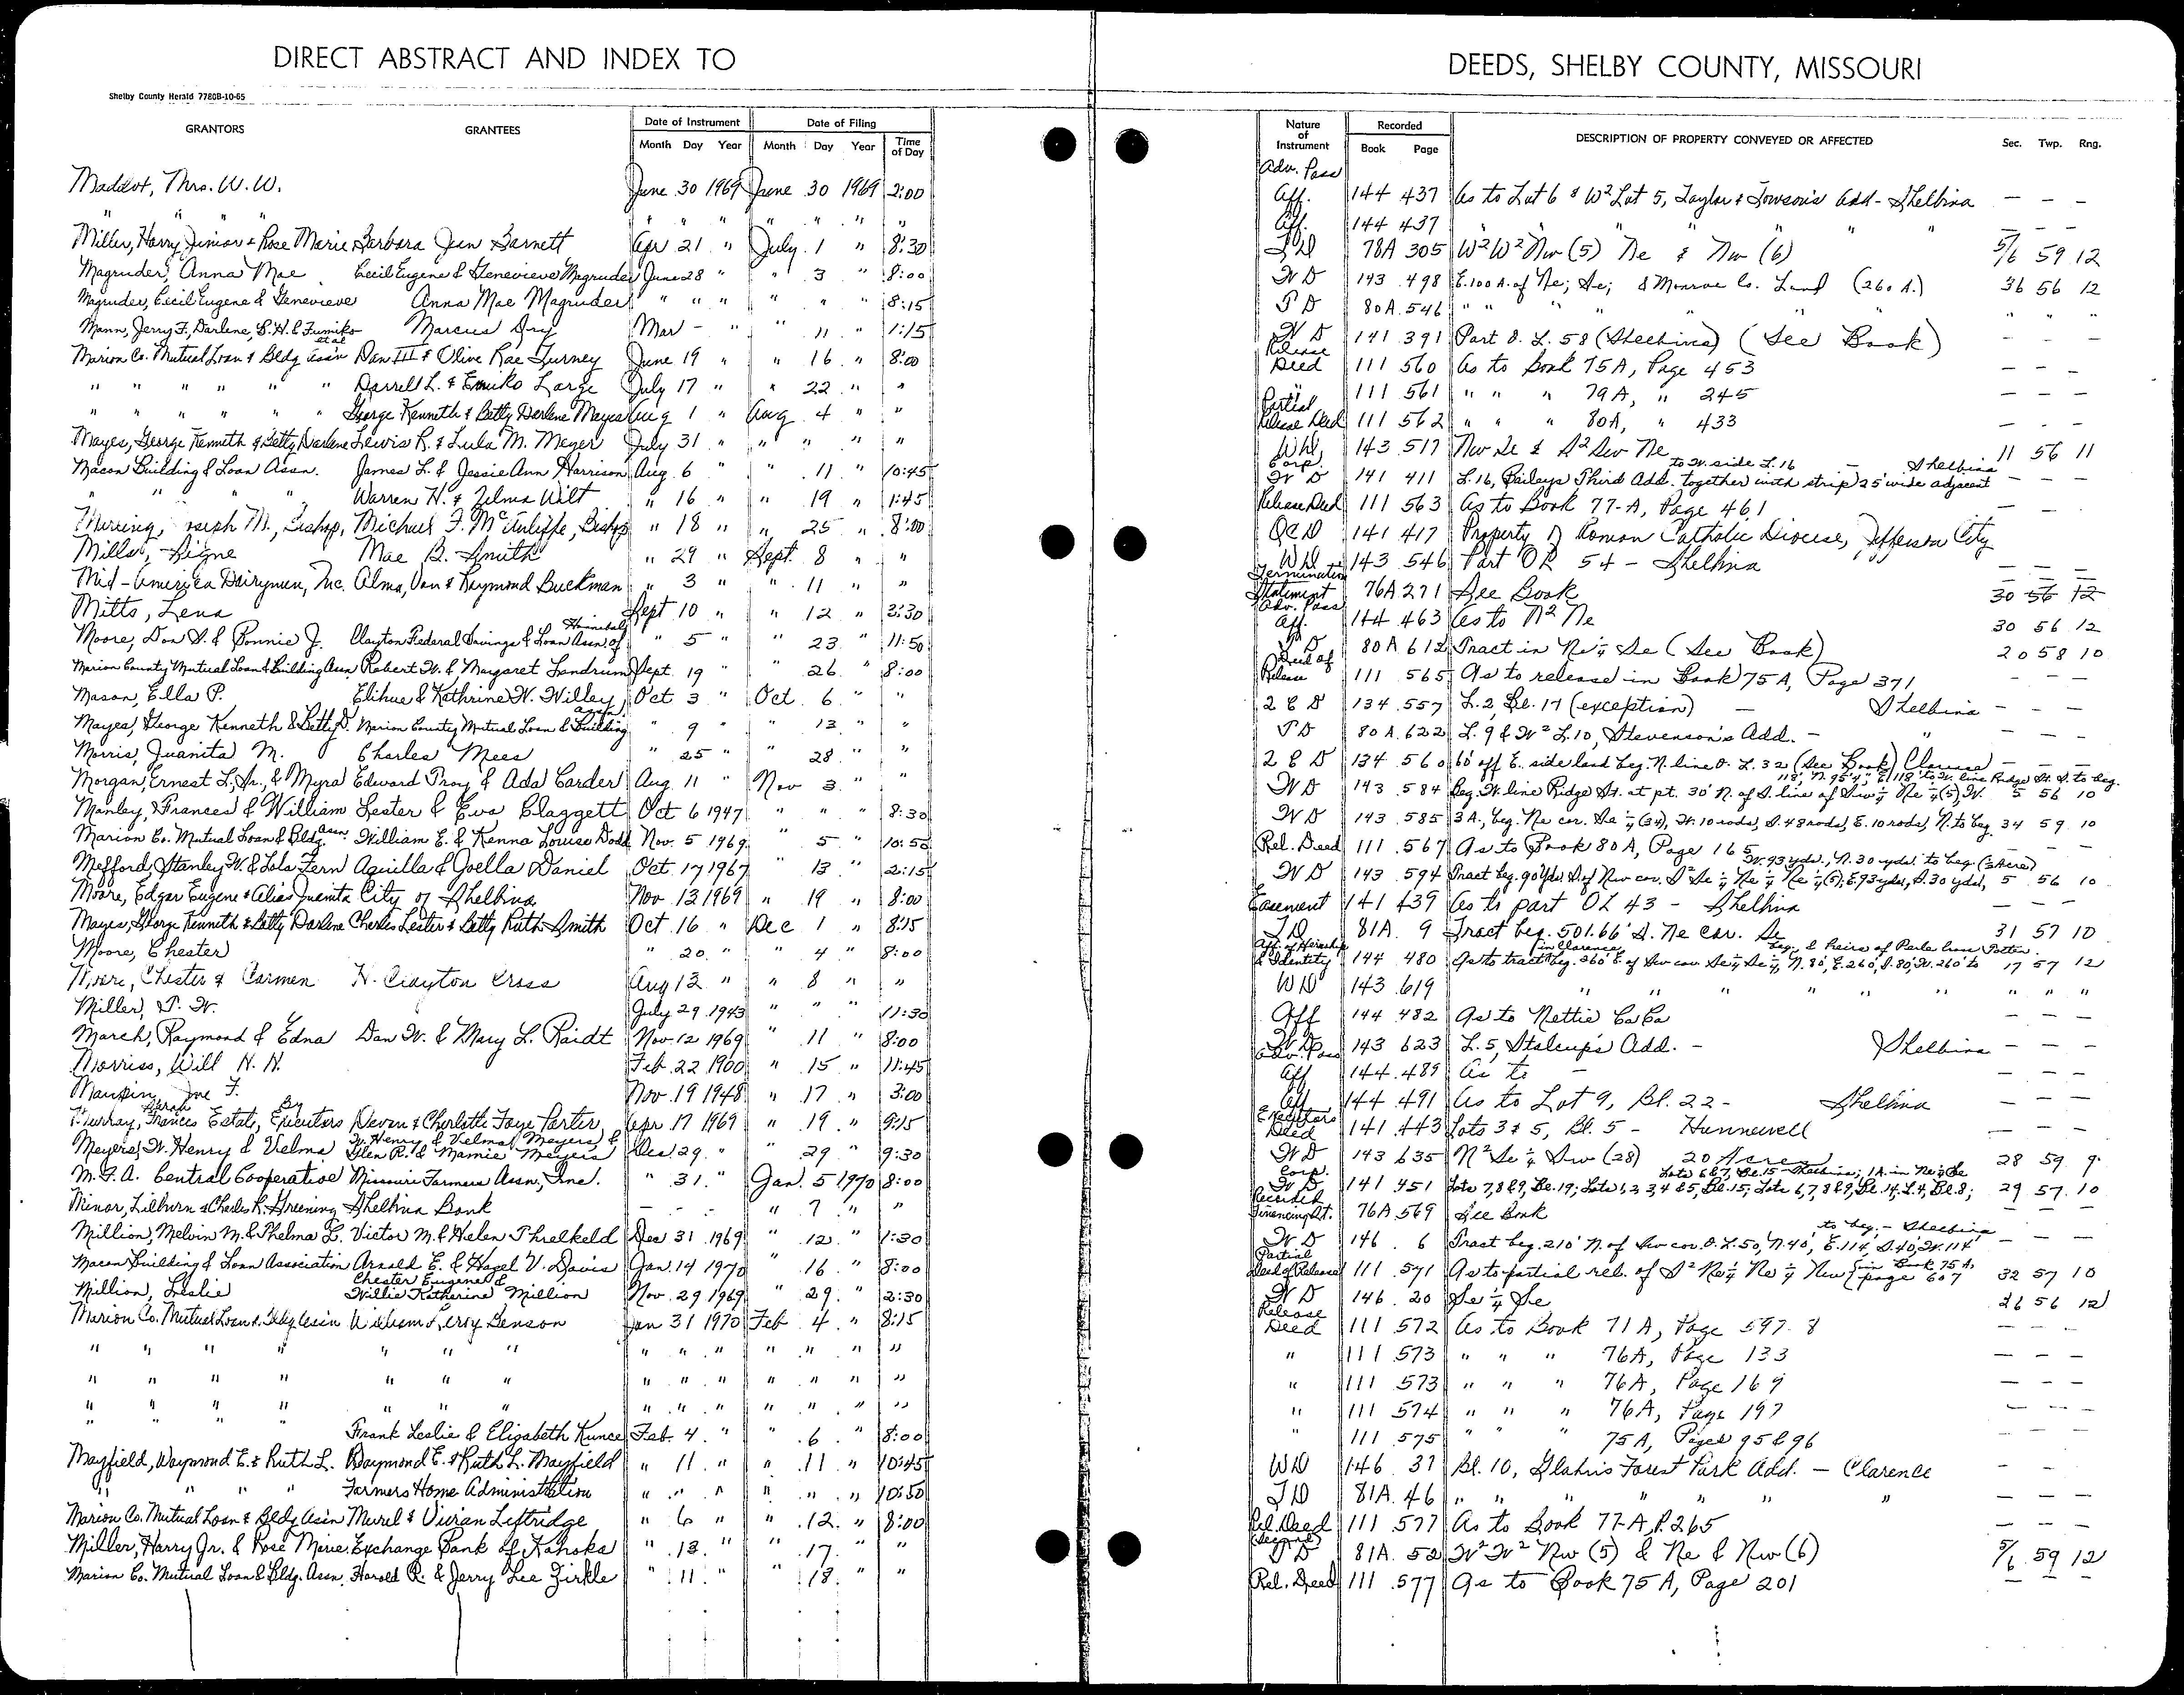 DIRECT ABSTRACT AND INDEX TO
DEEDS, SHELBY COUNTY, MISSOURI
Shelby County Herald 7780B-10-65
GRANTORS GRANTEES Date of Instrument Date of Filing
Month Day Year Month Day Year Time of Day
Nature of Instrument Recorded Book Page DESCRIPTION OF PROPERTY CONVEYED OR AFFECTED Sec. Twp. Rng.
Maddox, Mrs. W. W. June 30 1969 June 30 1969 2:00 Adv. Poss Aff. 144 437 As to Lot 6 & W² Lot 5, Taylor & Towson's Add - Shelbina — — —
" " " " " " " " " " " Aff. 144 437 " " " "
Miller, Harry Junior & Rose Marie Barbara Jean Barnett Apr 21 " July 1 " 8:30 TD 78A 305 W² W² Nw (5) Ne & Nw (6) 5/6 59 12
Magruder, Anna Mae Cecil Eugene & Genevieve Magruder June 28 " " 3 " 8:00 WD 143 498 E. 100 A. of Ne; Se; & Monroe Co. Land (260 A.) 36 56 12
Magruder, Cecil Eugene & Genevieve Anna Mae Magruder " " " " " " 8:15 TD 80A 546 " " " " " " " "
Mann, Jerry F., Darlene, B. H. & Fumiko et al Marcus Dry Mar - " " 11 " 1:15 WD 141 391 Part O. L. 58 (Shelbina) (See Book) — — —
Marion Co. Mutual Loan & Bldg Ass'n Dan III & Olive Rae Turney June 19 " " 16 " 8:00 Release Deed 111 560 As to Book 75A, Page 453 — — —
" " " " " " Darrell L. & Emiko Large July 17 " " 22 " " " 111 561 " " " 79A, " 245 — — —
" " " " " " George Kenneth & Betty Darlene Mayes Aug 1 " Aug 4 " " Partial Release Deed 111 562 " " " 80A, " 433 — — —
Mayes, George Kenneth & Betty Darlene Lewis R. & Lula M. Meyer July 31 " " " " " WD 143 517 Nw Se & S² Sw Ne 11 56 11
Macon Building & Loan Assn. James L. & Jessie Ann Harrison Aug. 6 " " 11 " 10:45 Corp. WD 141 411 L. 16, Baileys Third Add. together with strip 25' wide adjacent to W. side L. 16 - Shelbina — — —
" " " " Warren H. & Zelma Wilt " 16 " " 19 " 1:45 Release Deed 111 563 As to Book 77-A, Page 461 — — —
Joseph M., Bishop, Michael F. McAuliffe, Bishop " 18 " " 25 " 8:00 QCD 141 417 Property of Roman Catholic Diocese, Jefferson City
Mills, Signe Mae B. Smith " 29 " Sept. 8 " " WD 143 546 Part OL 54 - Shelbina — — —
Mid-America Dairymen, Inc. Alma, Van & Raymond Buckman " 3 " " 11 " " Termination Statement 76A 271 See Book 30 56 12
Mitts, Lena Sept 10 " " 12 " 3:30 Adv. Poss Aff. 144 463 As to N² Ne 30 56 12
Moore, Don S. & Bonnie J. Clayton Federal Savings & Loan Assn. of Hannibal " 5 " " 23 " 11:50 TD 80A 612 Tract in Ne¼ Se (See Book) 20 58 10
Marion County Mutual Loan & Building Assn Robert W. & Margaret Landrum Sept. 19 " " 26 " 8:00 Deed of Release 111 565 As to release in Book 75A, Page 371 — — —
Mason, Ella P. Elihue & Kathrine W. Willey Oct 3 " Oct. 6 " " QCD 134 557 L. 2, Bl. 17 (exception) — Shelbina — — —
Mayes, George Kenneth & Betty D. Marion County Mutual Loan & Building Assn " 9 " " 13 " " TD 80A 622 L. 9 & W² L. 10, Stevenson's Add. - " — — —
Morris, Juanita M. Charles Mees " 25 " " 28 " " QCD 134 560 60' off E. side land beg. N. line O. L. 32 (See Book) Clarence — — —
Morgan, Ernest L., Sr., & Myra Edward Troy & Ada Carder Aug. 11 " Nov 3 " " WD 143 584 Beg. W. line Ridge St. at pt. 30' N. of S. line of Sw¼ Ne¼ (5), W. 118', N. 95'4", E. 118' to W. line Ridge St. S. to beg. 5 56 10
Manley, Frances & William Lester & Eva Claggett Oct 6 1947 " " " 8:30 WD 143 585 3 A., beg. Ne cor. Se¼ (34), W. 10 rods, S. 48 rods, E. 10 rods, N. to beg. 34 59 10
Marion Co. Mutual Loan & Bldg. Assn William E. & Kenna Louise Dodd Nov. 5 1969 " 5 " 10:50 Rel. Deed 111 567 As to Book 80A, Page 165
Mefford, Stanley W. & Lola Fern Aquilla & Goella Daniel Oct. 17 1967 " 13 " 2:15 WD 143 594 Tract beg. 90 yds. S. of Nw cor. S² Se¼ Ne¼ Ne¼ (5); E. 93 yds, S. 30 yds, W. 93 yds., N. 30 yds. to beg. 5 56 10
Moore, Edgar Eugene & Alias Juanita City of Shelbina Nov. 13 1969 " 19 " 8:00 Easement 141 439 As to part OL 43 - Shelbina — — —
Mayes, George Kenneth & Betty Darlene Charles Lester & Betty Ruth Smith Oct 16 " Dec 1 " 8:15 TD 81A 9 Tract beg. 501.66' S. Ne cor. Se 31 57 10
Moore, Chester " 20 " " 4 " 8:00 Aff. of Heirship & Identity 144 480 As to tract in Clarence beg. 260' E. of Sw cor Se¼ Se¼, N. 80', E. 260', S. 80', W. 260' to beg. & heirs of 17 57 12
Moore, Chester & Carmen H. Clayton Cross Aug 13 " " 8 " " WD 143 619 " " " " " " " " "
Miller, T. W. July 29 1943 " " " 11:30 Aff 144 482 As to Nettie — — —
March, Raymond & Edna Dan W. & Mary L. Raidt Nov. 12 1969 " 11 " 8:00 WD 143 623 L. 5, Stalcup's Add. - Shelbina — — —
Morriss, Will H. H. Feb. 22 1900 " 15 " 11:45 Adv. Poss Aff 144 489 As to — — — —
Maupin, Joe F. Nov. 19 1948 " 17 " 3:00 Aff 144 491 As to Lot 9, Bl. 22 - Shelbina — — —
Murray, Sarah Frances Estate, By Executors Devan & Charlotte Faye Porter Apr 17 1969 " 19 " 9:15 Executors Deed 141 443 Lots 3 & 5, Bl. 5 - Hunnewell — — —
Meyers, W. Henry & Velma W. Henry & Velma Meyers & Glen R. & Mamie Meyers Dec. 29 " " 29 " 9:30 WD 143 635 N² Se¼ Sw (28) 20 Acres 28 59 9
M.F.A. Central Cooperative Missouri Farmers Assn., Inc. " 31 " Jan. 5 1970 8:00 Corp. WD 141 451 Lots 7, 8 & 9, Bl. 19; Lots 1, 2, 3, 4 & 5, Bl. 15; Lots 6, 7, 8 & 9, Bl. 14, L. 4, Bl. 8; Lots 6 & 7, Bl. 15 - Shelbina; 1A. in Ne¼ Se 29 57 10
Minor, Lilburn & Charles R. Greening Shelbina Bank — - - " 7 " " Recorded Financing St. 76A 569 See Book — — —
Million, Melvin M. & Thelma L. Victor M. & Helen Threlkeld Dec 31 1969 " 12 " 1:30 WD 146 6 Tract beg. 210' N. of Sw cor. O. L. 50, N. 40', E. 114', S. 40', W. 114' to beg. - Shelbina — — —
Macon Building & Loan Association Arnold E. & Hazel V. Davis Jan. 14 1970 " 16 " 8:00 Partial Deed of Release 111 571 As to partial rel. of S² Ne¼ Ne¼ New in Book 75A, page 607 32 57 10
Million, Leslie Chester Eugene & Willie Katherine Million Nov. 29 1969 " 29 " 2:30 WD 146 20 Se¼ Se 26 56 12
Marion Co. Mutual Loan & Bldg Ass'n William Leroy Benson Jan 31 1970 Feb 4 " 8:15 Release Deed 111 572 As to Book 71A, Page 597-8 — — —
" " " " " " " " " " " " " " " 111 573 " " " 76A, Page 133 — — —
" " " " " " " " " " " " " " " 111 573 " " " 76A, Page 169 — — —
" " " " " " " " " " " " " " " 111 574 " " " 76A, Page 197 — — —
" " " " Frank Leslie & Elizabeth Kunce Feb. 4 " " 6 " 8:00 " 111 575 " " " 75A, Pages 95 & 96 —
Mayfield, Waymond E. & Ruth L. Waymond E. & Ruth L. Mayfield " 11 " " 11 " 10:45 WD 146 37 Bl. 10, Forest Park Add. - Clarence — —
" " " " Farmers Home Administration " " " " " " 10:50 TD 81A 46 " " " " " " — — —
Marion Co. Mutual Loan & Bldg Ass'n Murel & Vivian Leftridge " 6 " " 12 " 8:00 Rel. Deed 111 577 As to Book 77-A, P. 265 — — —
Miller, Harry Jr. & Rose Marie Exchange Bank of Kahoka " 13 " " 17 " " (Second) TD 81A 52 W² W² Nw (5) & Ne & Nw (6) 5/6 59 12
Marion Co. Mutual Loan & Bldg. Assn. Harold R. & Jerry Lee Zirkle " 11 " " 18 " " Rel. Deed 111 577 As to Book 75A, Page 201 — — —